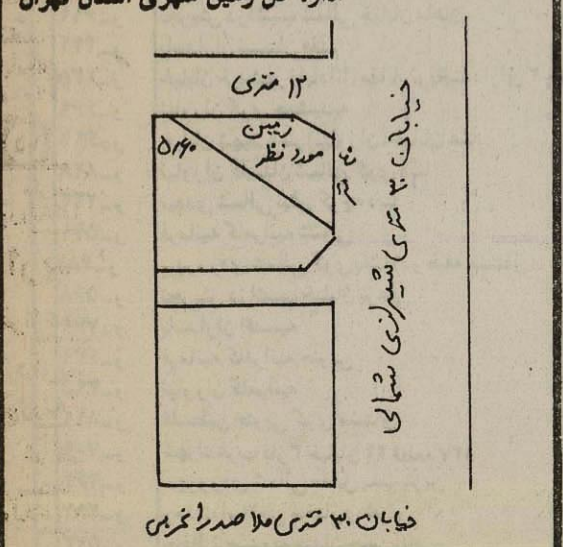 اداره کل زمین شهری استان تهران
۱۲ متری
زمین
مورد نظر
۵۱۶۰
متر
خیابان ۳۰ متری شیرازی شمالی
خیابان ۳۰ متری ملاصدرا غربی